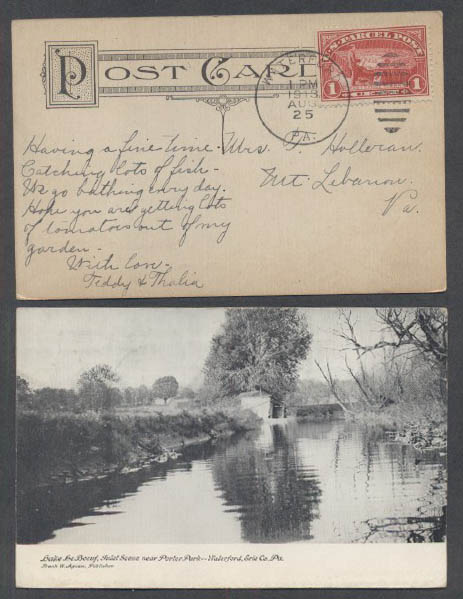 POST CARD
U.S. PARCEL POST
1 1
WATERFORD
1 PM
AUG
25
PA.
Having a fine time. Mrs. J. Holleran.
Catching lots of fish - Mt. Lebanon.
We go bathing every day. Pa.
Hope you are getting lots
of tomatoes out of my
garden -
With love -
Teddy & Thalia
Lake Le Boeuf, Inlet Scene near Porter Park—Waterford, Erie Co., Pa.
Frank W. Publisher